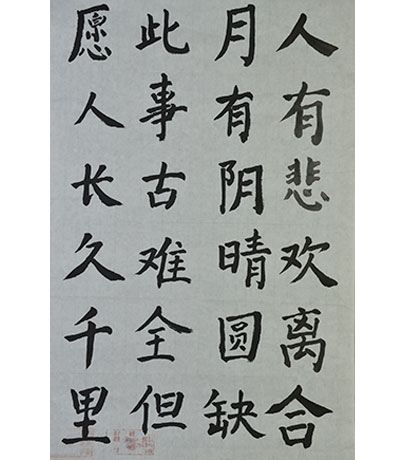 人有悲欢离合
月有阴晴圆缺
此事古难全但
愿人长久千里